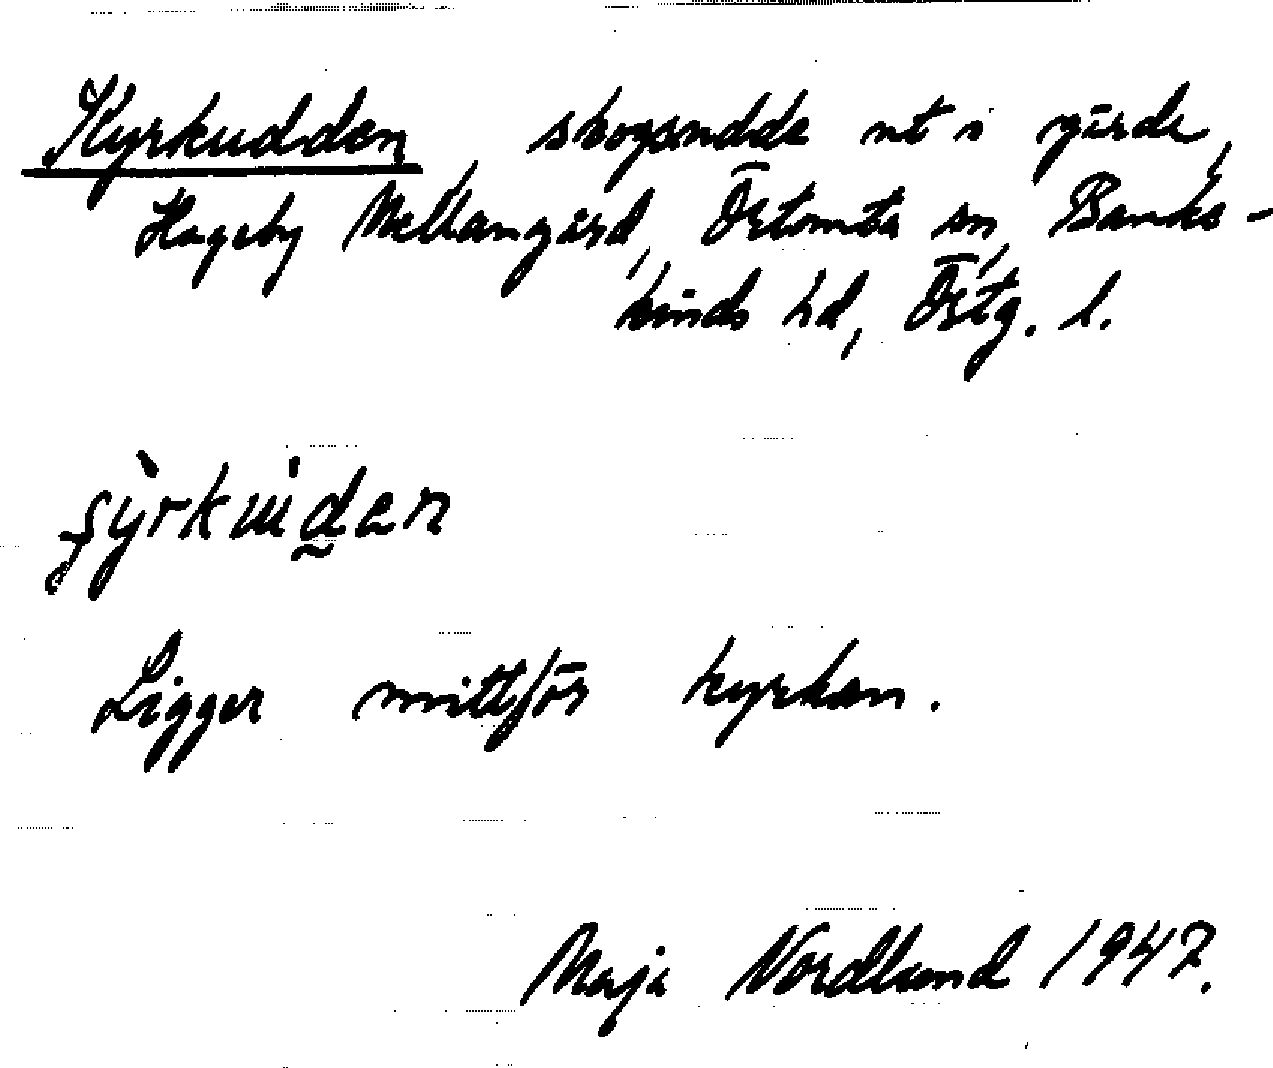 Kyrkudden, skogsudde ut i gärde,
Hageby Mellangård, Östomta sn, Banke-
kinds hd, Östg. l.
Ligger mittför kyrkan.
Maja Nordlund 1947.